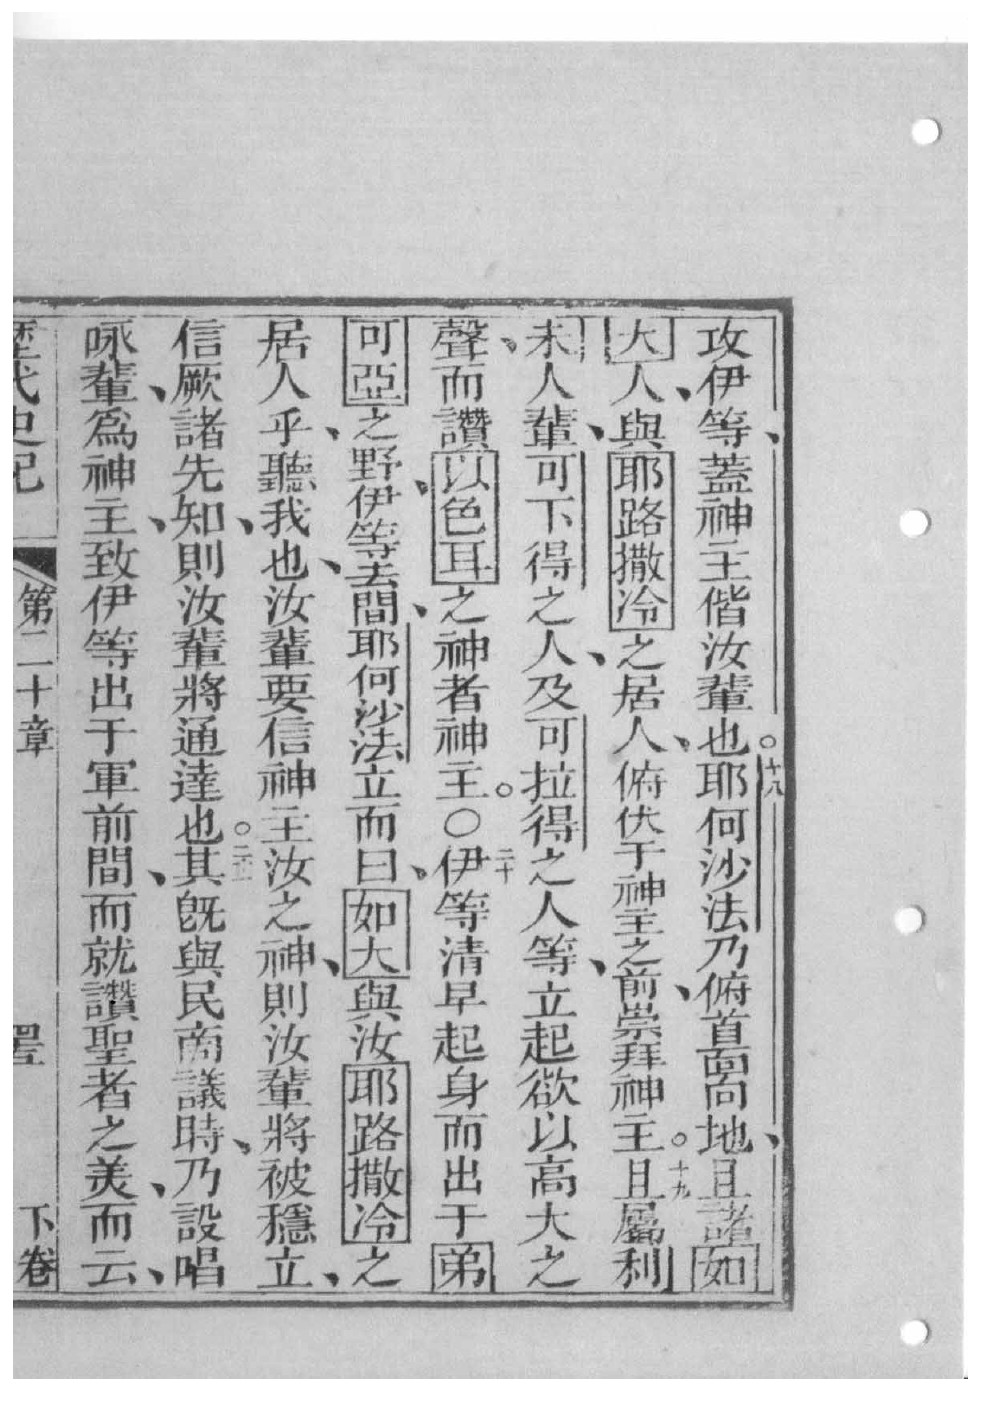 攻伊等、蓋神主偕汝輩也。十八耶何沙法乃俯首面向地、且諸如
大人、與耶路撒冷之居人、俯伏于神主之前、崇拜神主。十九且屬利
未人輩、可下得之人、及可拉得之人等、立起欲以高大之
聲、而讚以色耳之神者神主。○二十伊等清早起身而出于弟
可亞之野、伊等去間、耶何沙法立而曰、如大與汝耶路撒冷之
居人乎、聽我也、汝輩要信神主汝之神、則汝輩將被穩立、
信厥諸先知、則汝輩將通達也。其既與民商議時、乃設唱
咏輩、爲神主、致伊等出于軍前間、而就讚聖者之美、而云、
歷代史記 第二十章 下卷